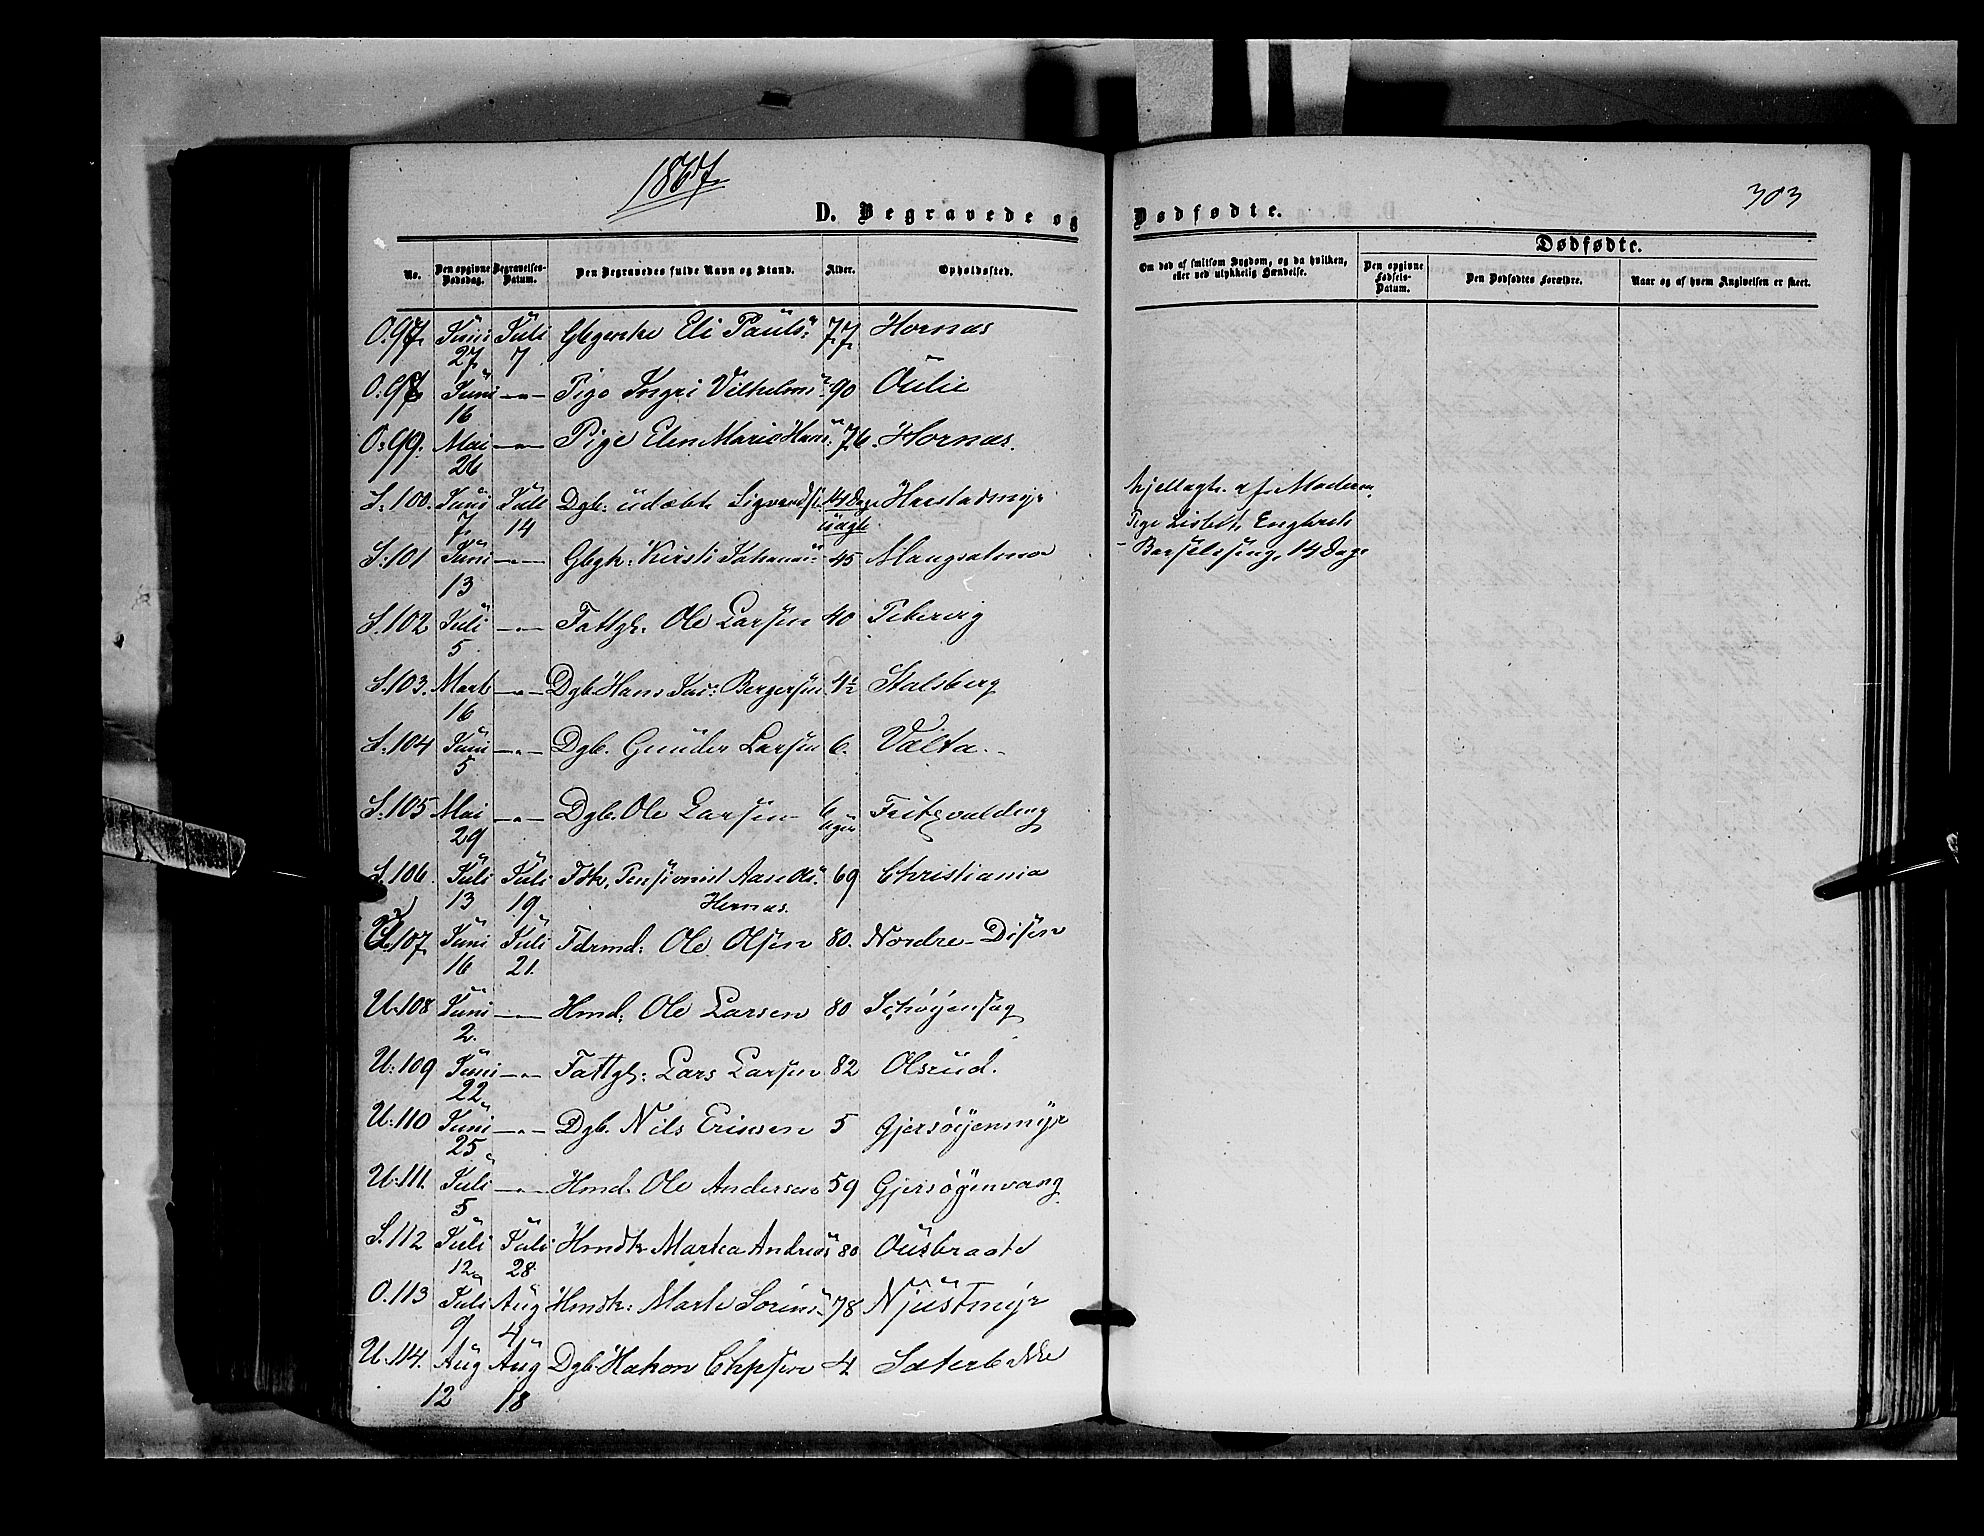 1867.
303
D. Begravede og Dødfødte.
Dødfødte.
No.
Den opgivne Dødsdag.
Begravelses-Datum.
Den Begravedes fulde Navn og Stand.
Alder.
Opholdssted.
Om død af smitsom Sygdom, og da hvilken, eller ved ulykkelig Hændelse.
Den opgivne Fødsels-Datum.
Den Dødfødtes Forældre.
Naar og af hvem Angivelsen er skeet.
O.97. Juni 27 Juli 7 Eli Pauls: 77 Hornæs
O.98 Juni 16 -"- Pige Ingri Vilhelms: 90 Oulie
O:99. Mai 26 -"- Pige Elen Marie Hans: 76. Hornæs.
S.100. Juni 7 Juli 14 Dgb: udøbt Sigvardsen 14 Dage uægte
ihjellagt af Moderen,
Pige Lisbet Engbret:
S.101 Juni 13 -"- Kirsti Johannes: 45
- Barselseng, 14 Dage
S.102 Juli 5 -"- Fattgl. Ole Larsen 40 Pebervig
S.103. Mart 16 -"- Dgb. Hans Jac: Bergersen 4½ Stalsberg
S.104 Juni 5 -"- Dgb. Gunder Larsen 6. Vælta.
S.105 Mai 29 -"- Dgb. Ole Larsen 6 Uger
S.106. Juli 13 Juli 19 Pensionist 69 Christiania
Hernæs.
U.107 Juni 16 Juli 21. Fdrmd: Ole Olsen 80. Nordre-Disen
U.108 Juni 2. -"- Hmd: Ole Larsen 80 Schøyensag
U:109 Juni 22 -"- Fattgl: Lars Larsen 82 Olsrud.
U.110 Juni 25 -"- Dgb. Nils Eriksen 5 Gjersøyenmyr
U.111. Juli 5 -"- Hmd. Ole Andersen 59 Gjersøyenvang
S.112 Juli 12 Juli 28 Hmdk. Martea Andreas: 80 Ousbraate
O.113 Juli 9 Aug 4 Hmdk: Marte Sørens: 78 Njustmyr
U.114. Aug 12 Aug 18 Dgb Hakon Chpsen 4 Sæterbække